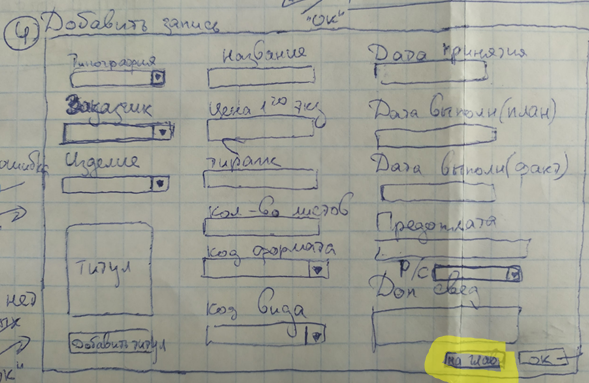 "ОК"
4. Добавить запись
Типография
Заказчик
Изделие
Титул
Добавить титул
Название
Цена 1го экз
Тираж
Кол-во листов
Код формата
Код вида
Дата принятия
Дата выполн(план)
Дата выполн(факт)
Предоплата
Р/С
Доп свед
на глав
ОК
ошибка
нет
ОК"